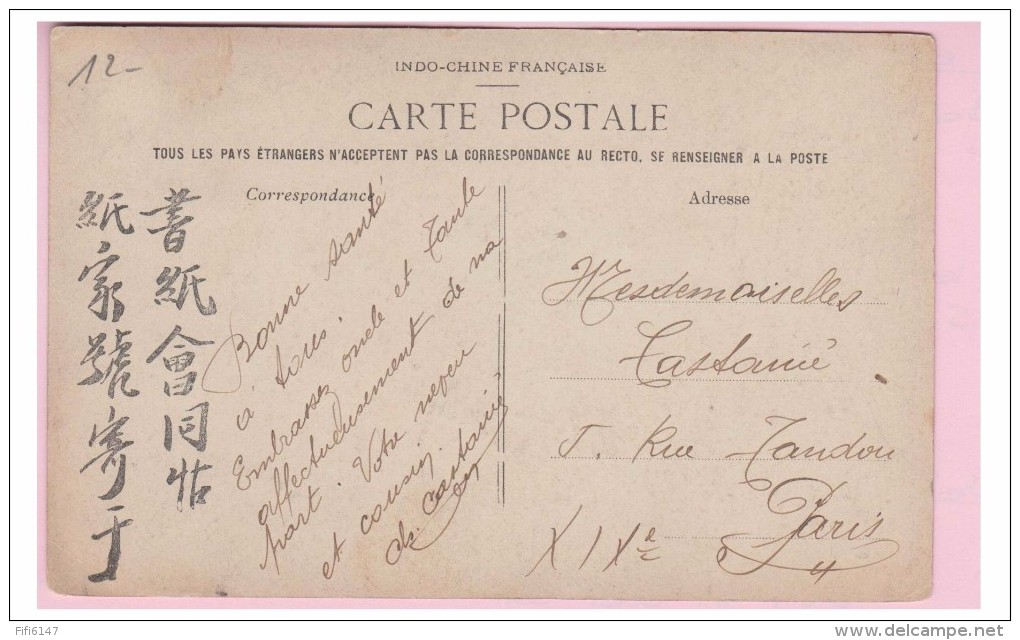 12-
INDO-CHINE FRANÇAISE
CARTE POSTALE
TOUS LES PAYS ÉTRANGERS N'ACCEPTENT PAS LA CORRESPONDANCE AU RECTO, SE RENSEIGNER A LA POSTE
Correspondance
Adresse
書紙會同帖
紙家號寄于
Bonne santé
à tous.
Embrassez oncle et Tante
affectueusement de ma
part. Votre neveu
et cousin.
Castanié
Mesdemoiselles
Castanié
Rue Tandou
Paris
XIXe
Fifi6147
delcampe.net